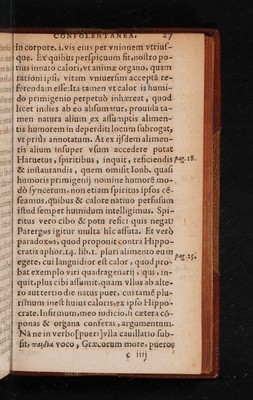 CONSOLENTANEA. 27
in corpore. i. vis eius per vnionem vtrius-
que. Ex quibus perspicuum fit, nostro po-
tius innato calori, vt animæ organo, quam
rationi ipsi, vitam vniuersim acceptã re-
ferendam esse: Ita tamen vt calor is humi-
do primigenio perpetuò inhæreat, quod
licet indies ab eo absumatur, prouida ta-
men natura alium ex assumptis alimen-
tis humorem in deperditi locum subrogat,
vt priùs annotatum. At ex ijsdem alimen-
tis alium insuper vsum accedere putat
Haruetus, spiritibus, inquit, reficiendis pag. 18.
& instaurandis, quem omisit Ioub. quasi
humoris primigenij nomine humorẽ mo-
dò syncerum, non etiam spiritus ipsos cẽ-
seamus, quibus & calore natiuo perfusum
istud semper humidum intelligimus. Spi-
ritus verò cibo & potu refici quis negat?
Parergωs igitur multa hîc affuta. Et verò
paradoxωs, quod proponit contra Hippo-
cratis aphor. 14. lib. 1. pluri alimento eum
egere, cui languidior est calor, quod pro- pag. 25.
bat exemplo viri quadragenarij, qui, in-
quit, plus cibi assumit, quam vllus ab alte-
ro aut tertio die natus puer, cui tamẽ plu-
rimum inest huius caloris, ex ipso Hippo-
crate. Infirmum, meo iudicio, si cætera cõ-
ponas & organa conferas, argumentum.
Na ne in verbo [pueri] vlla cauillatio sub-
sit, voco, Græcorum more, pueros
ç iiij